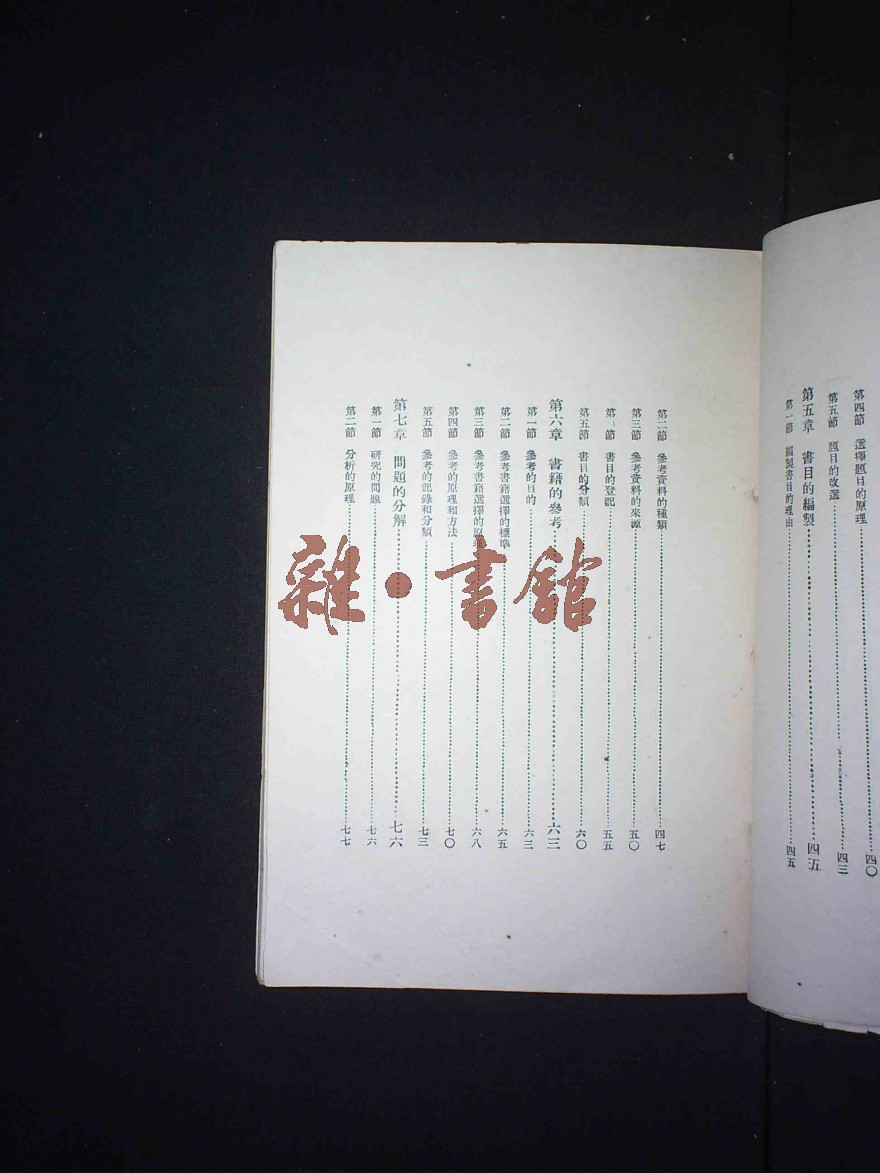 第四節 選擇題目的原理 四〇
第五節 題目的改選 四三
第五章 書目的編製 四五
第一節 編製書目的理由 四五
第二節 參考資料的種類 四七
第三節 參考資料的來源 五〇
第 節 書目的登記 五五
第五節 書目的分類 六〇
第六章 書籍的參考 六三
第一節 參考的目的 六三
第二節 參考書籍選擇的標準 六五
第三節 參考書籍選擇的原理 六八
第四節 參考的原理和方法 七〇
第五節 參考的記錄和分類 七三
第七章 問題的分解 七六
第一節 研究的問題 七六
第二節 分析的原理 七七
雜·書館